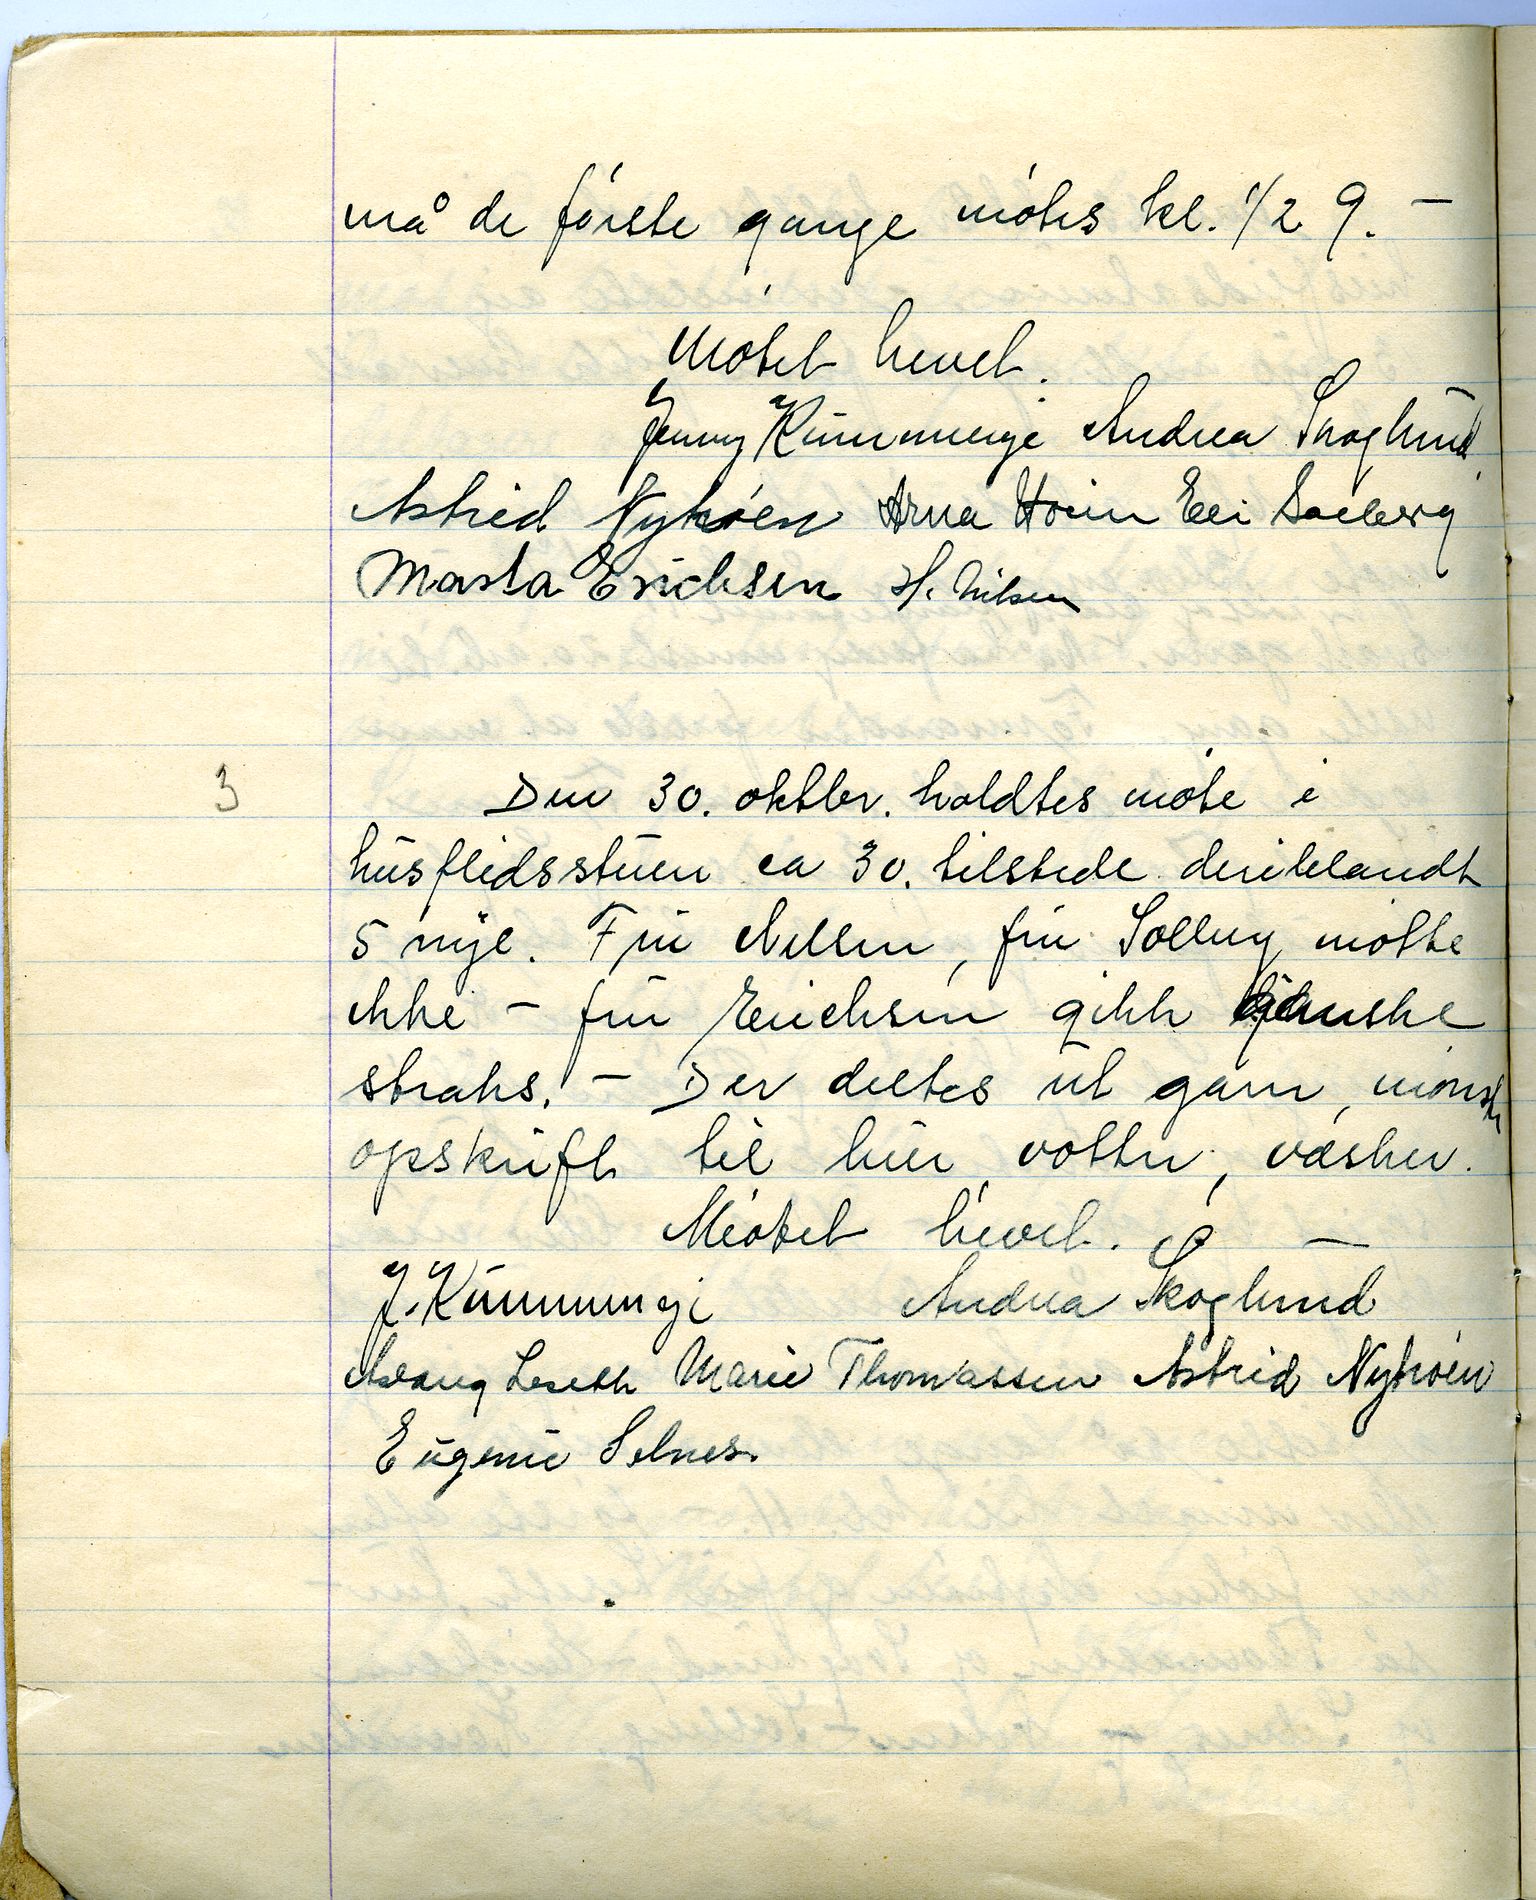 må de första gange mötes kl. 1/2 9. –
Mötet hevet.
Jenny Kümmeneje Andrea Skoglund
Astrid Nyhöen Arna Hoim Elli Solberg
Marta Erichsen H. Nilsen
3
Den 30. oktbr. holdtes möte i
husflidsstuen ca 30. tilstede deriblandt
5 nye. Fru Nilsen, fru Solberg mötte
ikke – fru Erichsen gikk ganske
straks. – Der deltes ut garn, mönster
opskrift til huer votter, væsker.
Mötet hevet. –
J. Kümmeneje Andrea Skoglund
Aslaug Leseth Marie Thomassen Astrid Nyhöen
Eugenie Selnes.